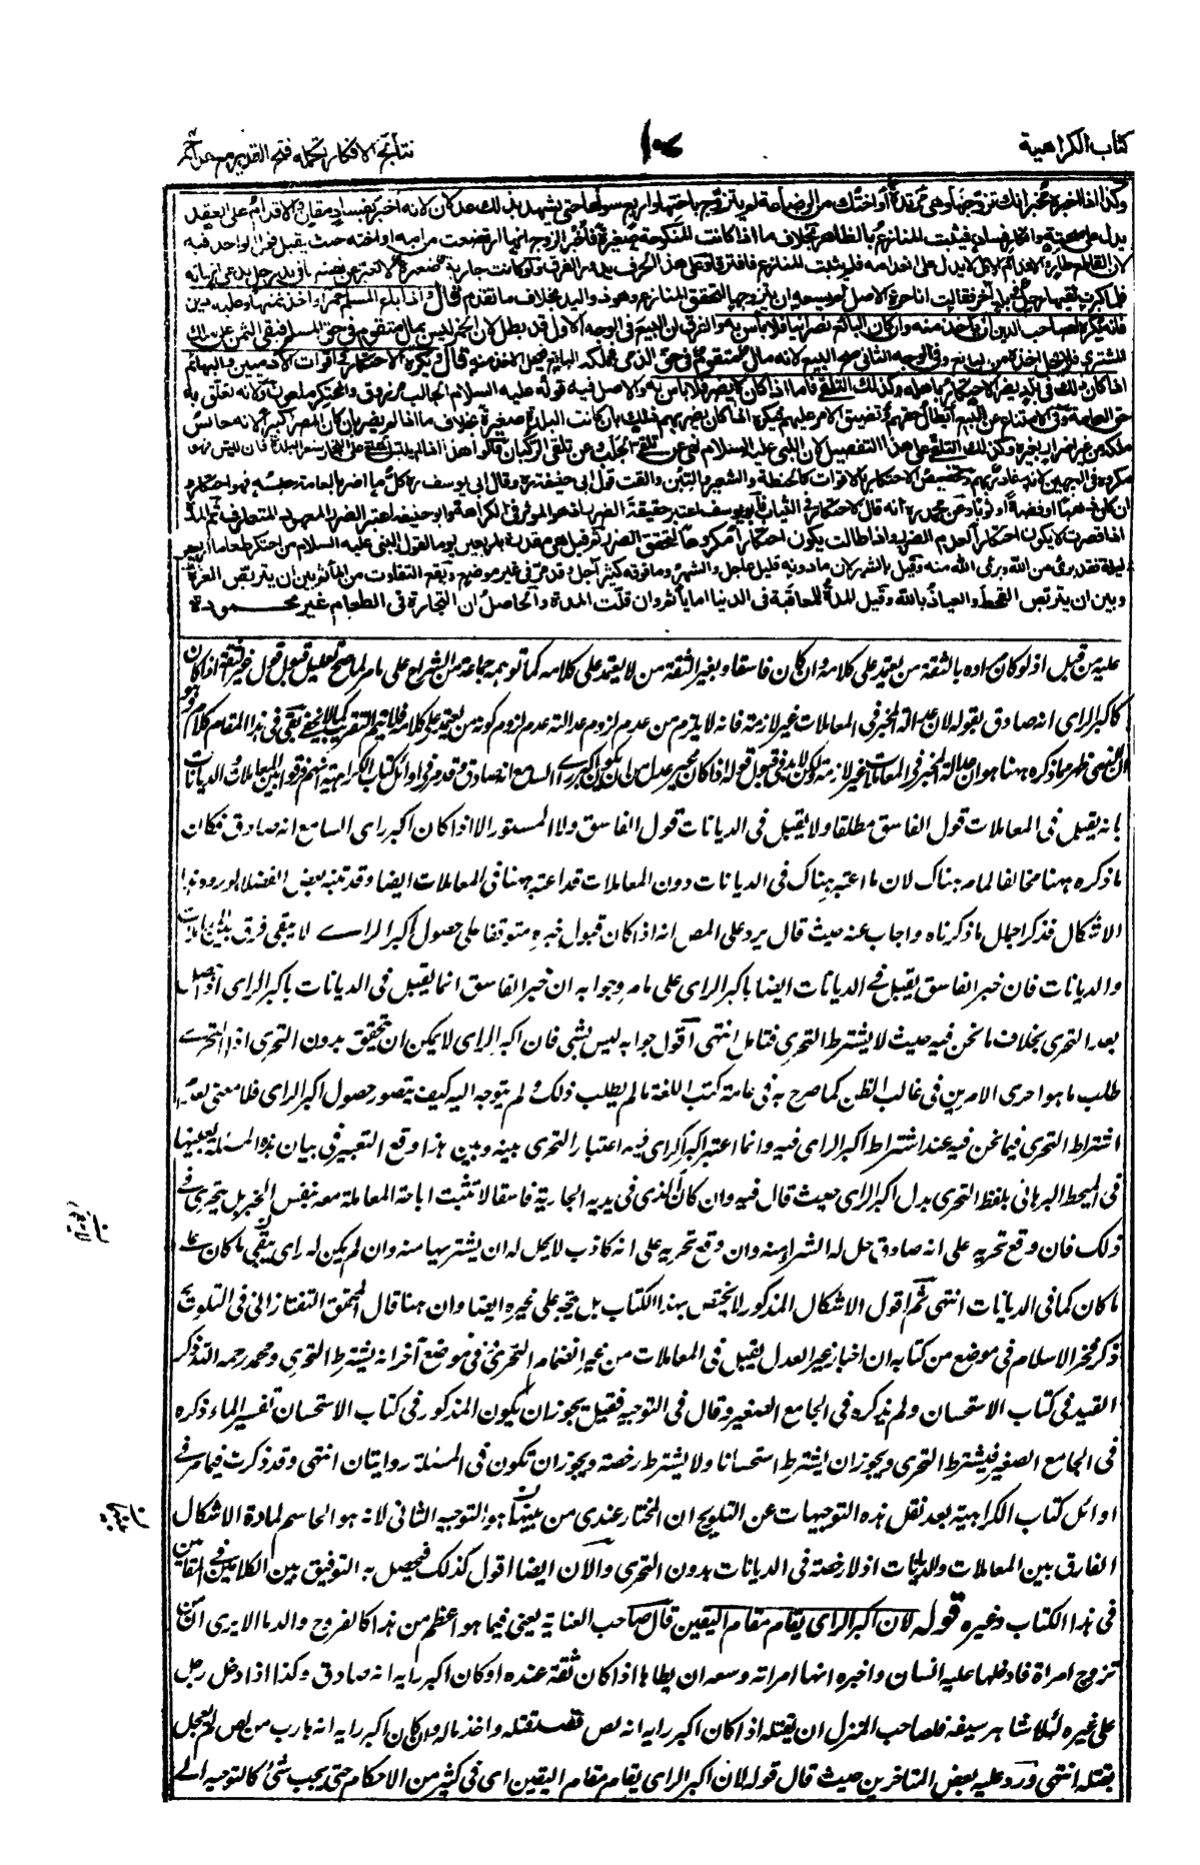 كتاب الكراهية
نتائج الافكار تكملة فتح القدير مع
وكذا اذا اخبره مخبر انك تزوجتها وهي مرتدة أو اختك من الرضاعة لم يتزوج باختها او اربع سواها حتى يشهد بذلك عدلان لانه اخبر بفساد مقارن والاقدام على العقد
يدل على صحته وانكار فساده فيثبت المنازع بالظاهر بخلاف ما اذا كانت المنكوحة صغيرة فأخبر الزوج انها ارتضعت من امه او اخته حيث يقبل قول الواحد فيه
لان القاطع طارئ والاقدام الاول لا يدل على انعدامه فلم يثبت المنازع فافترقا وعلى هذا الحرف يدور الفرق ولو كانت جارية صغيرة لا تعبر عن نفسها في يد رجل يدعي انها له
فلما كبرت لقيها رجل في بلد آخر فقالت انا حرة الاصل لم يسعه ان يتزوجها لتحقق المنازع وهو ذو اليد بخلاف ما تقدم قال واذا باع المسلم خمرا واخذ ثمنها وعليه دين
فانه يكره لصاحب الدين ان ياخذ منه وان كان البائع نصرانيا فلا باس به والفرق ان البيع في الوجه الاول قد بطل لان الخمر ليس بمال متقوم في حق المسلم فبقي الثمن على ملك
المشتري فلا يحل اخذه من البائع وفي الوجه الثاني صح البيع لانه مال متقوم في حق الذمي فملكه البائع فيحل الاخذ منه قال ويكره الاحتكار في اقوات الآدميين والبهائم
اذا كان ذلك في بلد يضر الاحتكار باهله وكذلك التلقي فاما اذا كان لا يضر فلا باس به والاصل فيه قوله عليه السلام الجالب مرزوق والمحتكر ملعون ولانه تعلق به
حق العامة وفي الامتناع عن البيع ابطال حقهم وتضييق الامر عليهم فيكره اذا كان يضر بهم ذلك بان كانت البلدة صغيرة بخلاف ما اذا لم يضر بان كان المصر كبيرا لانه حابس
ملكه من غير اضرار بغيره وكذلك التلقي على هذا التفصيل لان النبي عليه السلام نهى عن تلقي الجلب وعن تلقي الركبان قالوا هذا اذا لم يلبس المتلقي على التجار سعر البلدة فان لبس فهو
مكروه في الوجهين لانه غادر بهم وتخصيص الاحتكار بالاقوات كالحنطة والشعير والتبن والقت قول ابي حنيفة رح وقال ابي يوسف رح كل ما اضر بالعامة حبسه فهو احتكار و
ان كان ذهبا او فضة او ثوبا وعن محمد رح انه قال لا احتكار في الثياب فابو يوسف اعتبر حقيقة الضرر اذ هو المؤثر في الكراهة وابو حنيفة اعتبر الضرر المعهود المتعارف ثم المدة
اذا قصرت لا يكون احتكارا لعدم الضرر واذا طالت يكون احتكارا مكروها لتحقق الضرر ثم قيل هي مقدرة باربعين يوما لقول النبي عليه السلام من احتكر طعاما اربعين
ليلة فقد برئ من الله وبرئ الله منه وقيل بالشهر لان ما دونه قليل عاجل والشهر وما فوقه كثير آجل وقد مر في غير موضع ويقع التفاوت من المأثم بين ان يتربص العزة
وبين ان يتربص القحط والعياذ بالله وقيل المدة للمعاقبة في الدنيا اما ياثم وان قلت المدة والحاصل ان التجارة في الطعام غير محمودة
عليه من قبل اذ لو كان مراده بالثقة من يعتمد على كلامه وان كان فاسقا وبغير الثقة من لا يعتمد على كلامه كما توهمه جماعة من الشراح على ما مر لما صح تعليل قبول قول غير ثقة اذا كان
كاكبر الراي انه صادق بقوله لان عدالة المخبر في المعاملات غير لازمة فانه لا يلزم من عدم لزوم عدالته عدم لزوم كونه ممن يعتمد على كلامه فلا يتم التقريب كما لا يخفى بقي في هذا المقام كلام وهو
انه ظهر مما ذكره ههنا هو ان عدالة المخبر في المعاملات غير لازمة ولكن لا بد في قبول قوله اذا كان غير عدل من ان يكون اكبر راى السامع انه صادق وقد مر في اوائل كتاب الكراهية انهم فرقوا بين المعاملات والديانات
بانه يقبل في المعاملات قول الفاسق مطلقا ولا يقبل في الديانات قول الفاسق ولا المستور الا اذا كان اكبر راى السامع انه صادق فكان
ما ذكره ههنا مخالفا لما مر هناك لان ما اعتبر هناك في الديانات دون المعاملات قد اعتبر ههنا في المعاملات ايضا وقد تنبه بعض الفضلاء لورود هذا
الاشكال فذكر اجمال ما ذكرناه واجاب عنه حيث قال يرد على المص انه اذا كان قبول خبره متوقفا على حصول اكبر الراے لا يبقى فرق بين المعاملات
والديانات فان خبر الفاسق يقبل في الديانات ايضا باكبر الراى على ما مر وجوابه ان خبر الفاسق انما يقبل في الديانات باكبر الراى اذا حصل
بعد التحرى بخلاف ما نحن فيه حيث لا يشترط التحرى فتامل انتهى اقول جوابه ليس بشئ فان اكبر الراى لا يمكن ان يتحقق بدون التحرى اذ التحرے
طلب ما هو احرى الامرين في غالب الظن كما صرح به في عامة كتب اللغة ما لم يطلب ذلك ولم يتوجه اليه كيف يتصور حصول اكبر الراى فلا معنى لعدم
اشتراط التحرى فيما نحن فيه عند اشتراط اكبر الراى فيه وانما اعتبر اكبر الراى فيه اعتبار التحرى بينه وبين هذا وقع التعبير في بيان هذه المسئلة بعينها
في المحيط البرهاني بلفظ التحرى بدل اكبر الراى حيث قال فيه وان كان الذى في يديه الجارية فاسقا لا تثبت اباحة المعاملة معه بنفس الخبر بل يتحرى في
ذلك فان وقع تحريه على انه صادق حل له الشراء منه وان وقع تحريه على انه كاذب لا يحل له ان يشتريها منه وان لم يكن له راى يبقى ما كان علے
ما كان كما في الديانات انتهى ثم اقول الاشكال المذكور لا يختص بهذا الكتاب بل يتجه على غيره ايضا وان هنا قال المحقق التفتازانى في التلويح
ذكر فخر الاسلام في موضع من كتابه ان اخبار غير العدل يقبل في المعاملات من غير انضمام التحرى وفي موضع آخر انه يشترط التحرى ومحمد رحمه الله ذكر
القيد في كتاب الاستحسان ولم يذكره في الجامع الصغير وقال في التوجيه فقيل يجوز ان يكون المذكور في كتاب الاستحسان تفسيرا لما ذكره
في الجامع الصغير فيشترط التحرى ويجوز ان يشترط استحسانا ولا يشترط رخصة ويجوز ان تكون في المسئلة روايتان انتهى وقد ذكرت فيما مر في
اوائل كتاب الكراهية بعد نقل هذه التوجيهات عن التلويح ان المختار عندى من بينها هو التوجيه الثانى لانه هو الحاسم لمادة الاشكال
الفارق بين المعاملات والديانات اذ لا رخصة في الديانات بدون التحرى والآن ايضا اقول كذلك فيحصل به التوفيق بين الكلامين في المقامين
في هذا الكتاب وغيره قوله لان اكبر الراى يقام مقام اليقين قال صاحب العناية يعنى فيما هو اعظم من هذا كالفروج والدماء الا يرى ان من
تزوج امرأة فادخلها عليه انسان واخبره انها امراته وسعه ان يطاها اذا كان ثقة عنده او كان اكبر رايه انه صادق وكذا اذا دخل رجل
على غيره ليلا شاهر سيفه فلصاحب المنزل ان يقتله اذا كان اكبر رايه انه لص قصد قتله واخذ ماله وان كان اكبر رايه انه هارب من لص لم يعجل
بقتله انتهى ورد عليه بعض المتاخرين حيث قال قوله لان اكبر الراى يقام مقام اليقين اى في كثير من الاحكام حتى يجب شئ كالتوجيه الى